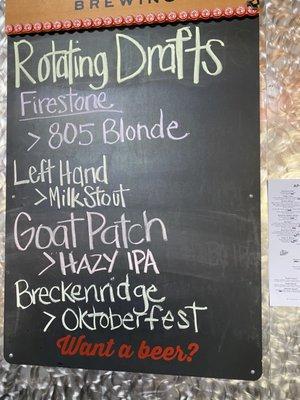 BREWING
Rotating Drafts
Firestone
> 805 Blonde
Left Hand
> Milk Stout
Goat Patch
> HAZY IPA
Breckenridge
> Oktoberfest
Want a beer?